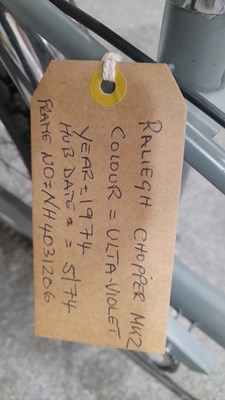 RALIEGH CHOPPER MK2
COLOUR = ULTA-VIOLET
YEAR = 1974
HUB DATE = 5/74
FRAME NO = NH4031206